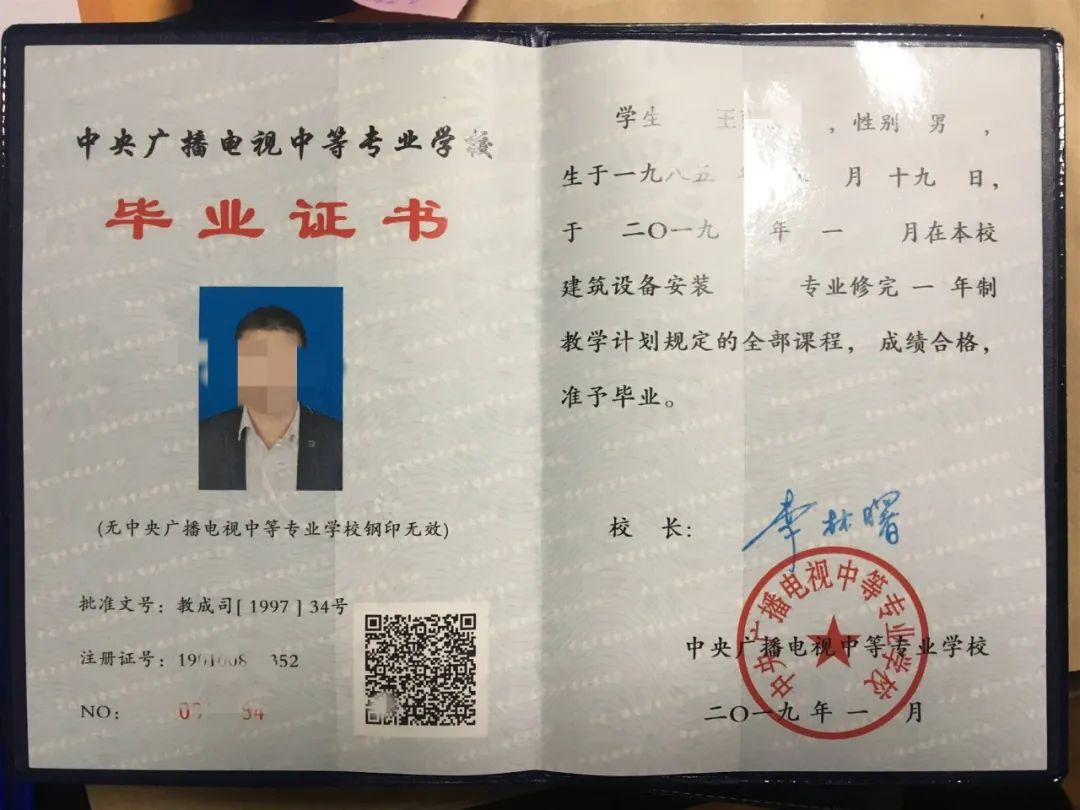 中央广播电视中等专业学校
毕业证书
(无中央广播电视中等专业学校钢印无效)
批准文号：教成司[1997]34号
注册证号：1901008 352
NO： 84
学生 王 ，性别 男 ，
生于一九八五 年 月 十九 日，
于 二〇一九 年 一 月在本校
建筑设备安装 专业修完 一 年制
教学计划规定的全部课程， 成绩合格，
准予毕业。
校 长： 李林曙
中央广播电视中等专业学校
中央广播电视中等专业学校
二〇一九 年 一 月